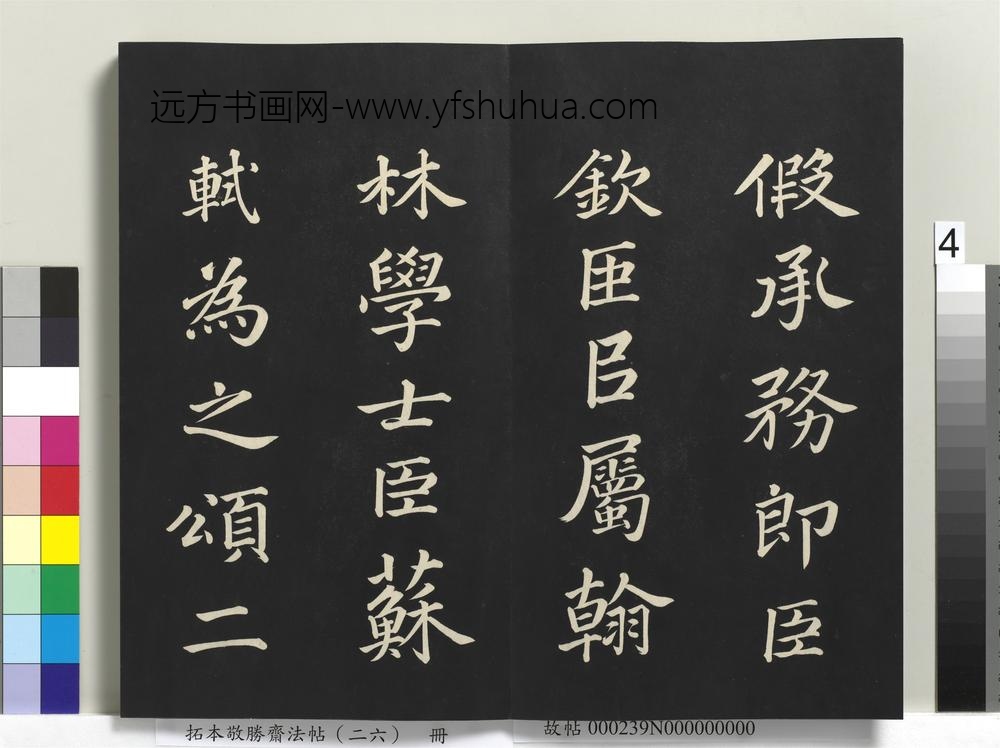 远方书画网-www.yfshuhua.com
假承務郎臣
欽臣㠯屬翰
林學士臣蘇
軾為之頌二
4
拓本敬勝齋法帖（二六） 冊
故帖 000239N000000000